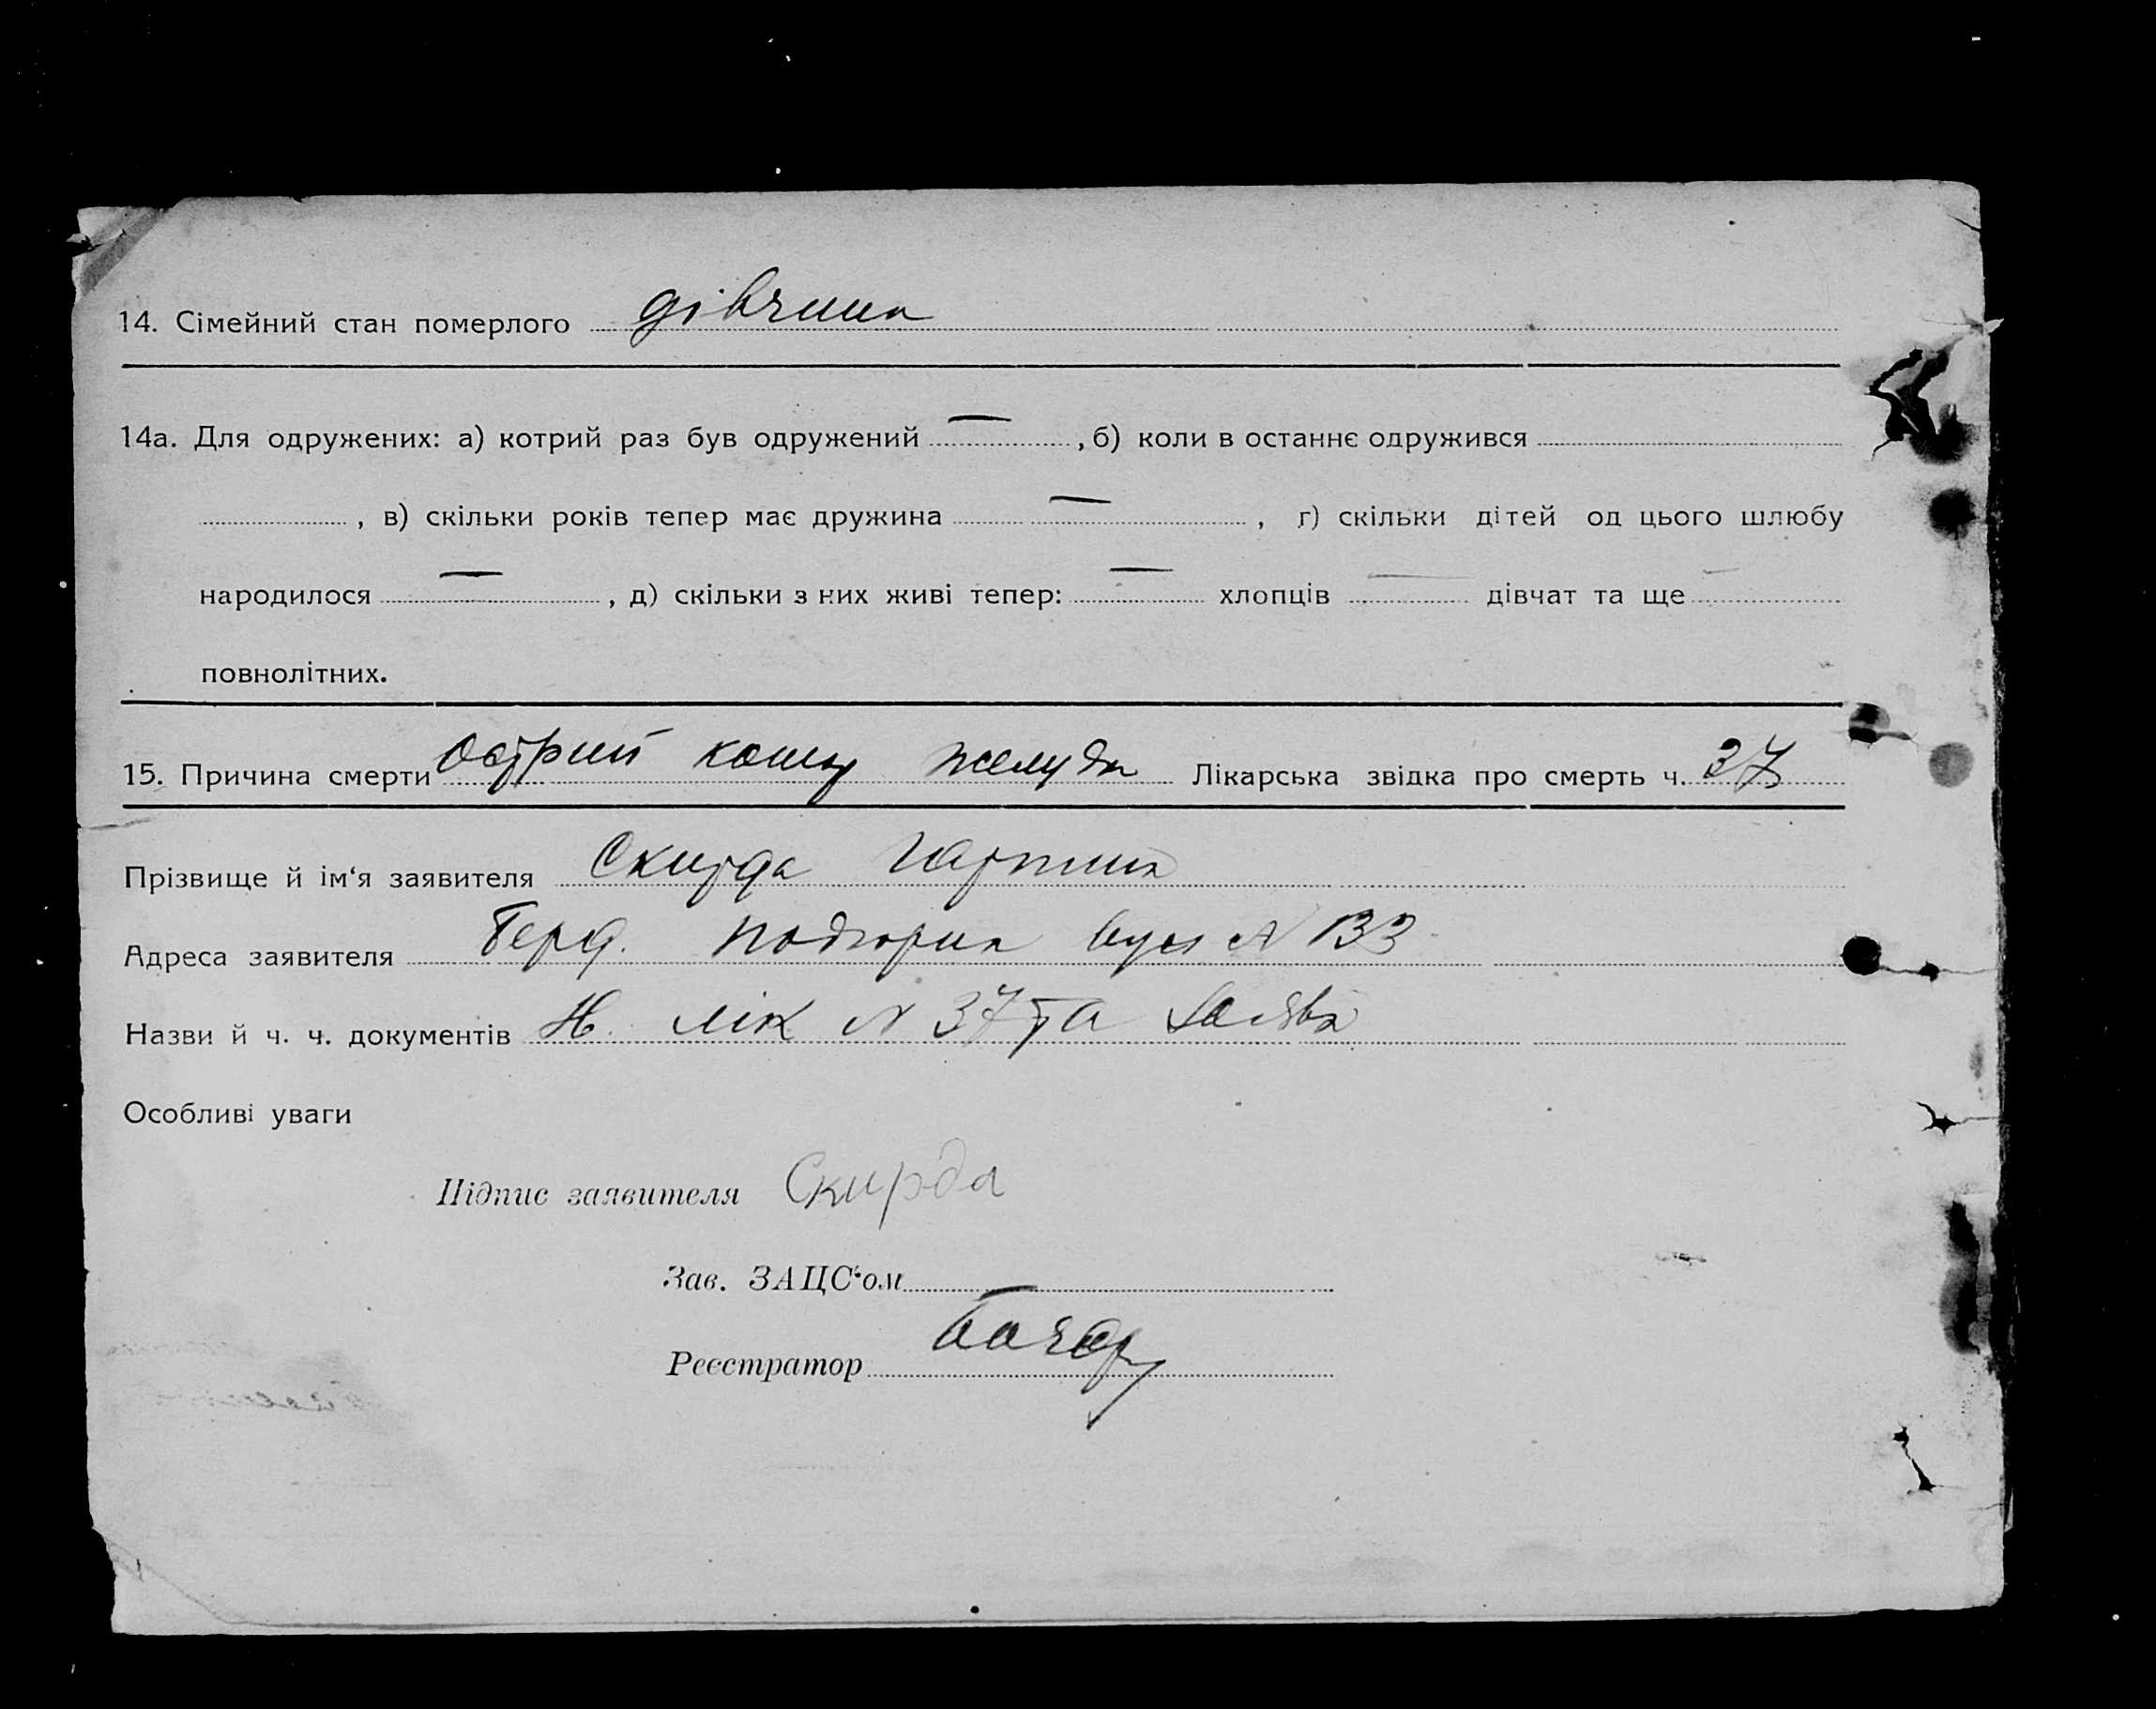 14. Сімейний стан померлого дівчина
14а. Для одружених: а) котрий раз був одружений — , б) коли в останнє одружився
, в) скільки років тепер має дружина — , г) скільки дітей од цього шлюбу
народилося — , д) скільки з них живі тепер: — хлопців — дівчат та ще —
повнолітних.
15. Причина смерти острий Лікарська звідка про смерть ч. 37
Прізвище й ім‘я заявителя Скирда
Адреса заявителя Берд. N 133
Назви й ч. ч. документів лік N 37 та заява
Особливі уваги
Підпис заявителя Скирда
Зав. ЗАЦС‘ом
Реєстратор